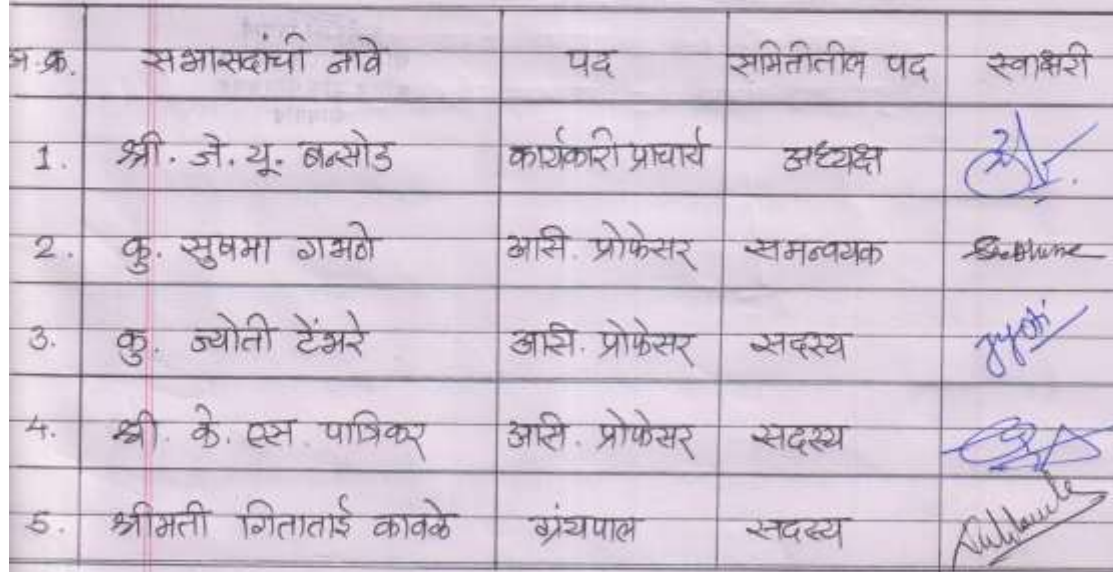 अ.क्र. सभासदांची नावे पद समितीतील पद स्वाक्षरी
1. श्री. जे. यू. बन्सोड कार्यकारी प्राचार्य अध्यक्ष
2. कु. सुषमा गभणे आसि. प्रोफेसर समन्वयक
3. कु. ज्योती टेंभरे आसि. प्रोफेसर सदस्य Jyoti
4. श्री. के. एस. पात्रिकर आसि. प्रोफेसर सदस्य
5. श्रीमती गिताताई कावळे ग्रंथपाल सदस्य